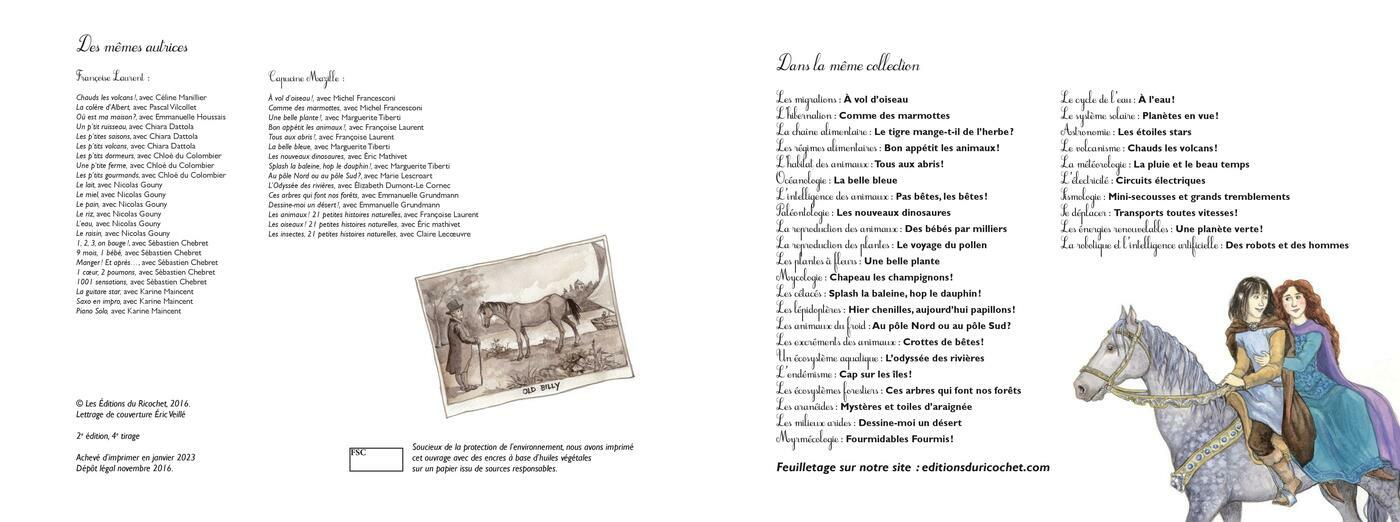 Des mêmes autrices
Françoise Laurent :
Chauds les volcans !, avec Céline Manillier
La colère d'Albert, avec Pascal Vilcollet
Où est ma maison ?, avec Emmanuelle Houssais
Un p'tit ruisseau, avec Chiara Dattola
Les p'tites saisons, avec Chiara Dattola
Les p'tits volcans, avec Chiara Dattola
Les p'tits dormeurs, avec Chloé du Colombier
Une p'tite ferme, avec Chloé du Colombier
Les p'tits gourmands, avec Chloé du Colombier
Le lait, avec Nicolas Gouny
Le miel, avec Nicolas Gouny
Le pain, avec Nicolas Gouny
Le riz, avec Nicolas Gouny
L'eau, avec Nicolas Gouny
Le raisin, avec Nicolas Gouny
1, 2, 3, on bouge !, avec Sébastien Chebret
9 mois, 1 bébé, avec Sébastien Chebret
Manger ! Et après…, avec Sébastien Chebret
1 cœur, 2 poumons, avec Sébastien Chebret
1001 sensations, avec Sébastien Chebret
La guitare star, avec Karine Maincent
Saxo en impro, avec Karine Maincent
Piano Solo, avec Karine Maincent
Capucine Mazille :
À vol d'oiseau !, avec Michel Francesconi
Comme des marmottes, avec Michel Francesconi
Une belle plante !, avec Marguerite Tiberti
Bon appétit les animaux !, avec Françoise Laurent
Tous aux abris !, avec Françoise Laurent
La belle bleue, avec Marguerite Tiberti
Les nouveaux dinosaures, avec Éric Mathivet
Splash la baleine, hop le dauphin !, avec Marguerite Tiberti
Au pôle Nord ou au pôle Sud ?, avec Marie Lescroart
L'Odyssée des rivières, avec Élizabeth Dumont-Le Cornec
Ces arbres qui font nos forêts, avec Emmanuelle Grundmann
Dessine-moi un désert !, avec Emmanuelle Grundmann
Les animaux ! 21 petites histoires naturelles, avec Françoise Laurent
Les oiseaux ! 21 petites histoires naturelles, avec Éric mathivet
Les insectes, 21 petites histoires naturelles, avec Claire Lecœuvre
OLD BILLY
© Les Éditions du Ricochet, 2016.
Lettrage de couverture Éric Veillé
2e édition, 4e tirage
Achevé d'imprimer en janvier 2023
Dépôt légal novembre 2016.
FSC
Soucieux de la protection de l'environnement, nous avons imprimé
cet ouvrage avec des encres à base d'huiles végétales
sur un papier issu de sources responsables.
Dans la même collection
Les migrations : À vol d'oiseau
L'hibernation : Comme des marmottes
La chaîne alimentaire : Le tigre mange-t-il de l'herbe ?
Les régimes alimentaires : Bon appétit les animaux !
L'habitat des animaux : Tous aux abris !
Océanologie : La belle bleue
L'intelligence des animaux : Pas bêtes, les bêtes !
Paléontologie : Les nouveaux dinosaures
La reproduction des animaux : Des bébés par milliers
La reproduction des plantes : Le voyage du pollen
Les plantes à fleurs : Une belle plante
Mycologie : Chapeau les champignons !
Les cétacés : Splash la baleine, hop le dauphin !
Les lépidoptères : Hier chenilles, aujourd'hui papillons !
Les animaux du froid : Au pôle Nord ou au pôle Sud ?
Les excréments des animaux : Crottes de bêtes !
Un écosystème aquatique : L'odyssée des rivières
L'endémisme : Cap sur les îles !
Les écosystèmes forestiers : Ces arbres qui font nos forêts
Les aranéides : Mystères et toiles d'araignée
Les milieux arides : Dessine-moi un désert
Myrmécologie : Fourmidables Fourmis !
Le cycle de l'eau : À l'eau !
Le système solaire : Planètes en vue !
Astronomie : Les étoiles stars
Le volcanisme : Chauds les volcans !
La météorologie : La pluie et le beau temps
L'électricité : Circuits électriques
Sismologie : Mini-secousses et grands tremblements
Se déplacer : Transports toutes vitesses !
Les énergies renouvelables : Une planète verte !
La robotique et l'intelligence artificielle : Des robots et des hommes
Feuilletage sur notre site : editionsduricochet.com